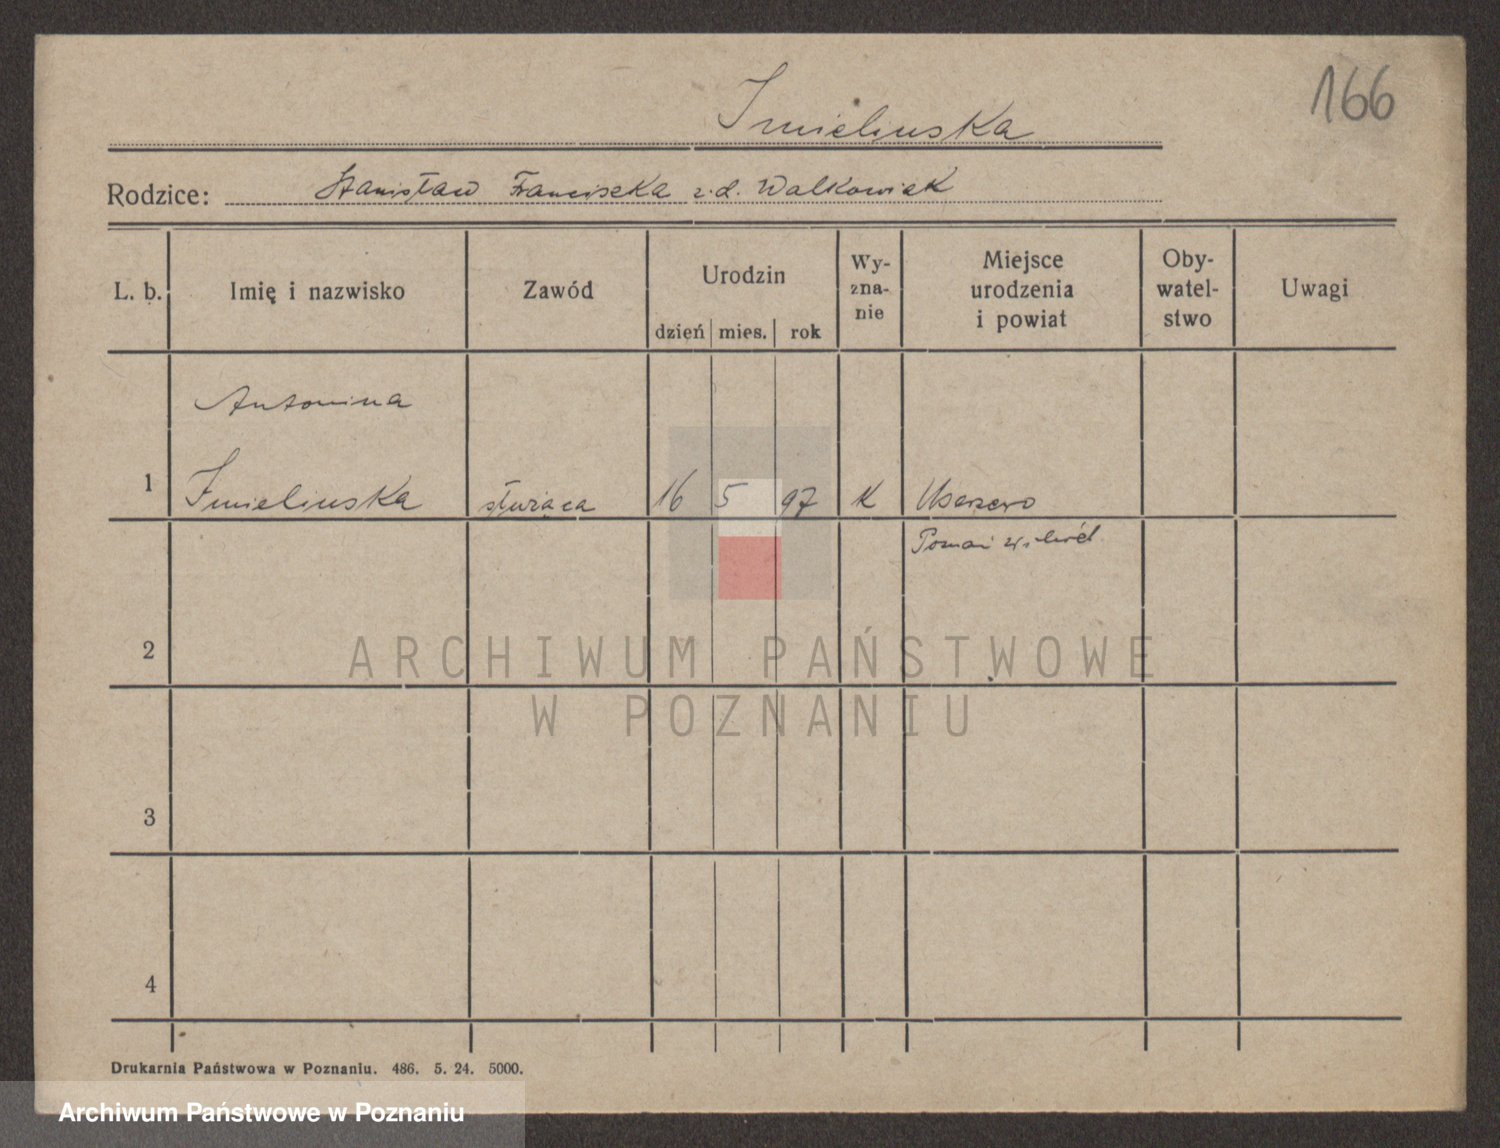 166
Imielinska
Rodzice: Stanisław Franciszka z.d. Walkowiak
L. b. Imię i nazwisko Zawód Urodzin dzień mies. rok Wy-zna-nie Miejsce urodzenia i powiat Oby-watel-stwo Uwagi
Antonina
1 Imielinska służąca 16 5 97 K
Poznań
2
ARCHIWUM PAŃSTWOWE
W POZNANIU
3
4
Drukarnia Państwowa w Poznaniu. 486. 5. 24. 5000.
Archiwum Państwowe w Poznaniu